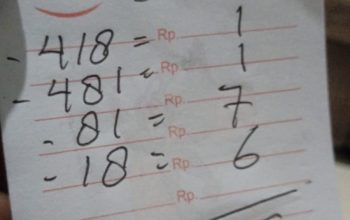 - 418 = Rp. 1
- 481 = Rp. 1
- 81 = Rp. 7
- 18 = Rp. 6
Rp.